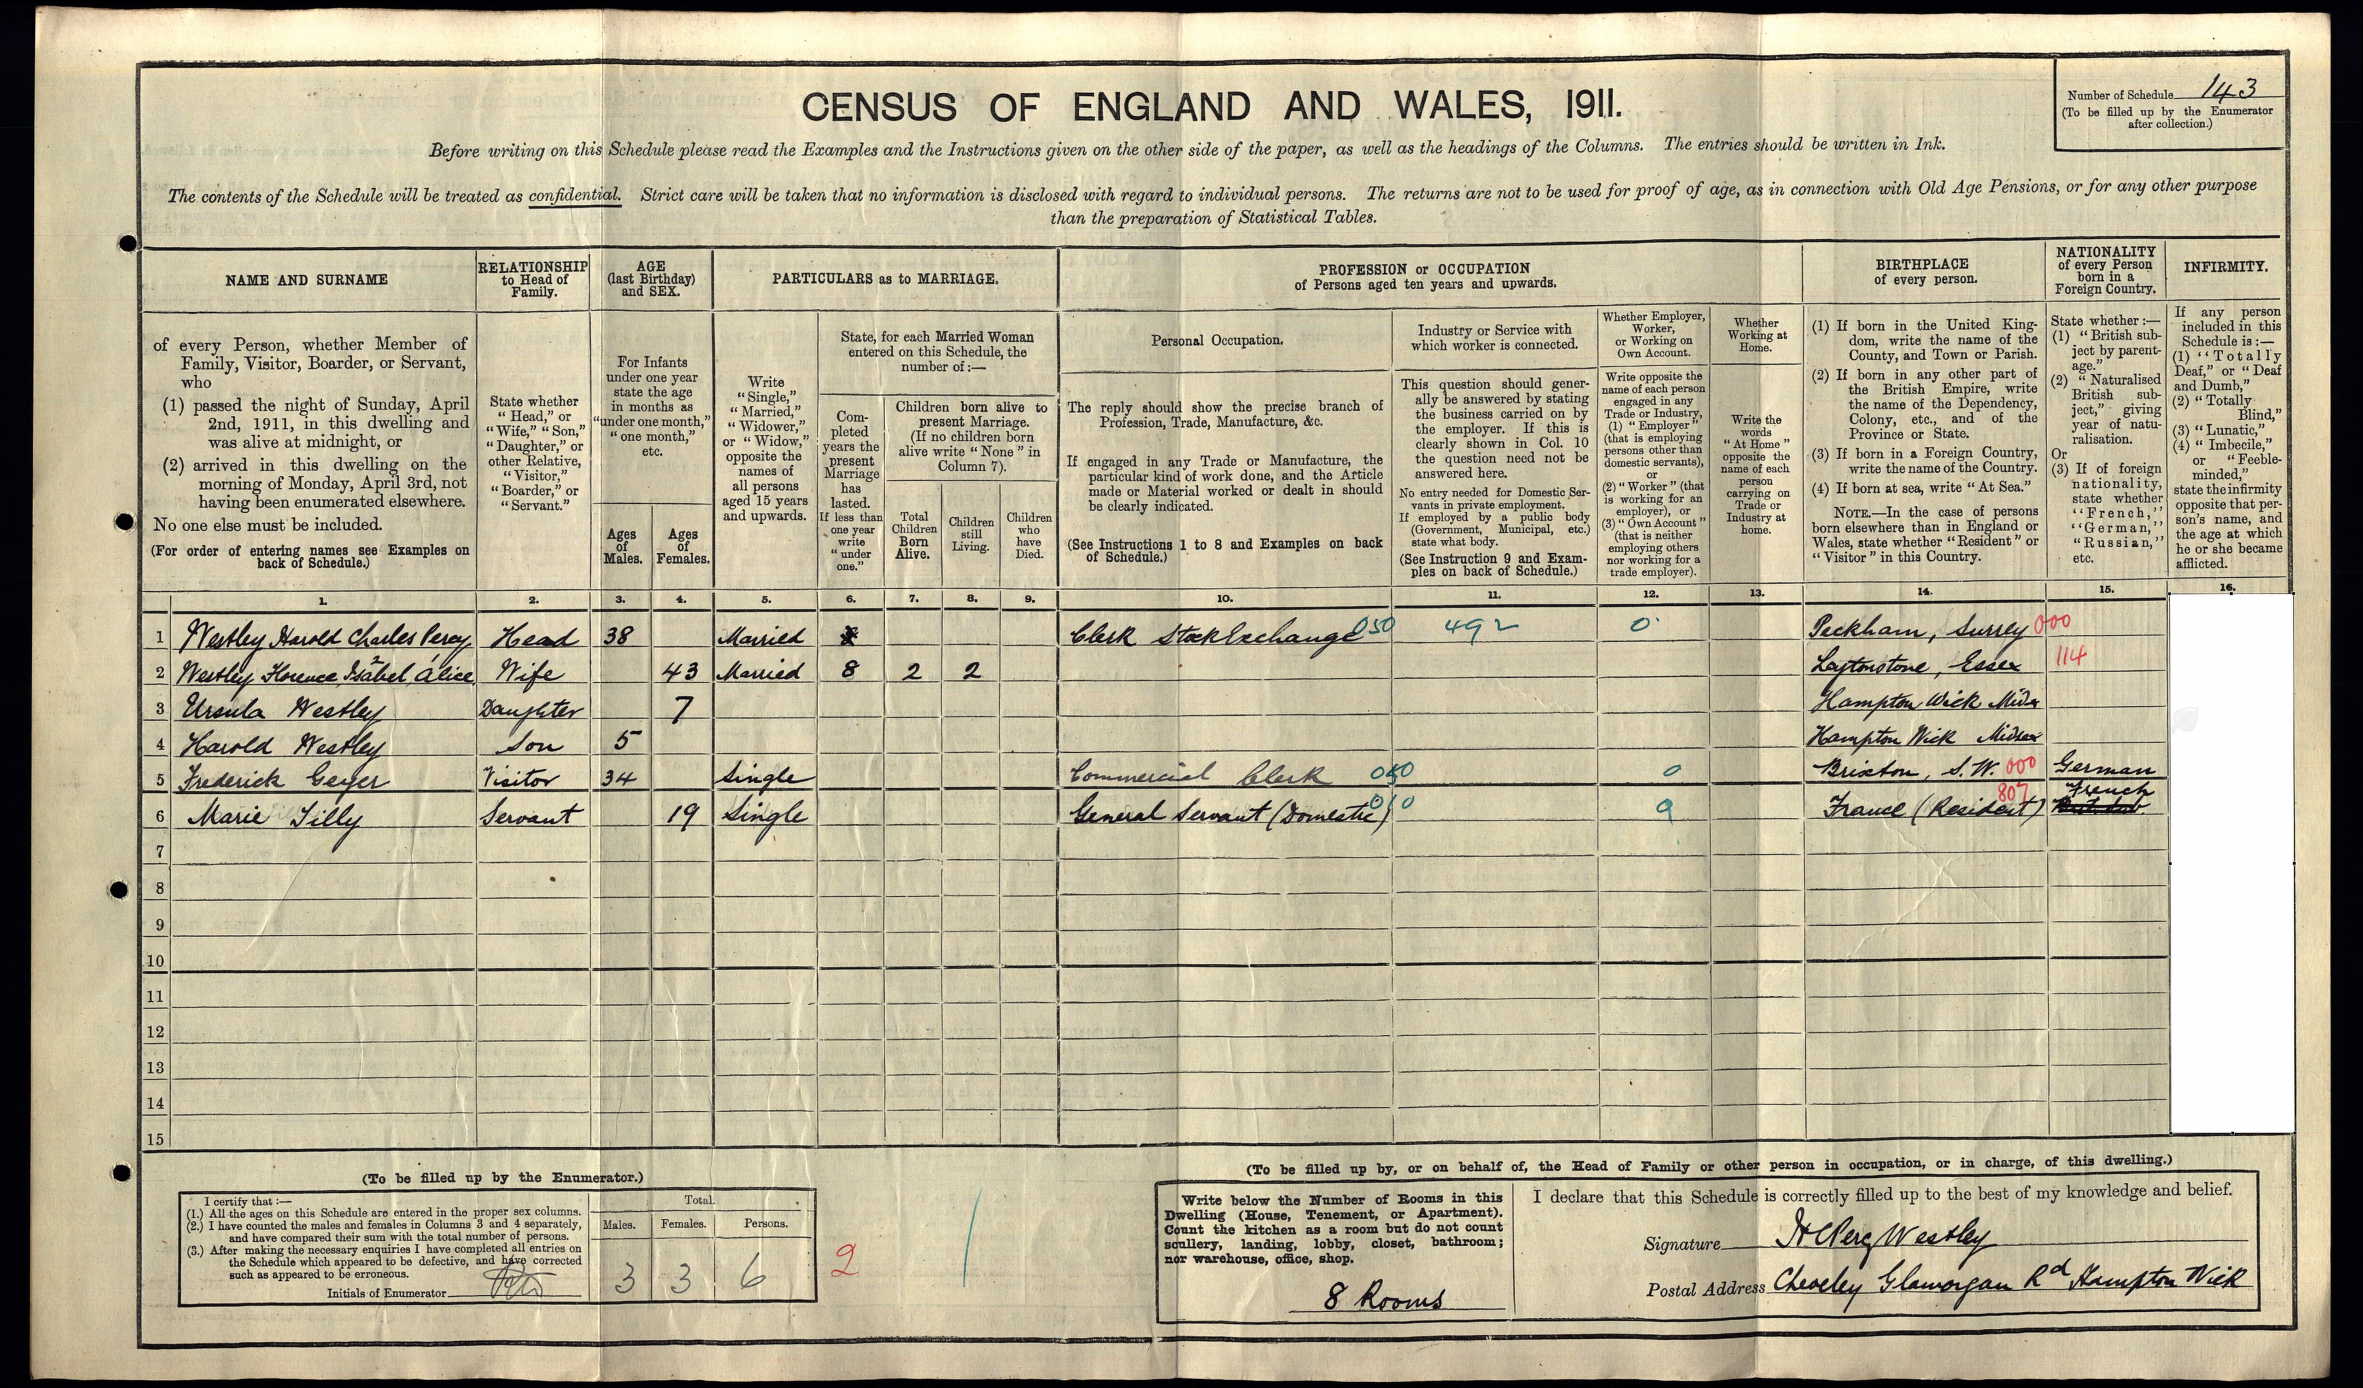 CENSUS OF ENGLAND AND WALES, 1911.
Number of Schedule 143
(To be filled up by the Enumerator
after collection.)
Before writing on this Schedule please read the Examples and the Instructions given on the other side of the paper, as well as the headings of the Columns. The entries should be written in Ink.
The contents of the Schedule will be treated as confidential. Strict care will be taken that no information is disclosed with regard to individual persons. The returns are not to be used for proof of age, as in connection with Old Age Pensions, or for any other purpose
than the preparation of Statistical Tables.
NAME AND SURNAME
of every Person, whether Member of
Family, Visitor, Boarder, or Servant,
who
(1) passed the night of Sunday, April
2nd, 1911, in this dwelling and
was alive at midnight, or
(2) arrived in this dwelling on the
morning of Monday, April 3rd, not
having been enumerated elsewhere.
No one else must be included.
(For order of entering names see Examples on
back of Schedule.)
RELATIONSHIP
to Head of
Family.
State whether
"Head," or
"Wife," "Son,"
"Daughter," or
other Relative,
"Visitor,"
"Boarder," or
"Servant."
AGE
(last Birthday)
and SEX.
For Infants
under one year
state the age
in months as
"under one month,"
"one month,"
etc.
Ages
of
Males.
Ages
of
Females.
PARTICULARS as to MARRIAGE.
Write
"Single,"
"Married,"
"Widower,"
or "Widow,"
opposite the
names of
all persons
aged 15 years
and upwards.
State, for each Married Woman
entered on this Schedule, the
number of:—
Com-
pleted
years the
present
Marriage
has
lasted.
If less than
one year
write
"under
one."
Children born alive to
present Marriage.
(If no children born
alive write "None" in
Column 7).
Total
Children
Born
Alive.
Children
still
Living.
Children
who
have
Died.
PROFESSION or OCCUPATION
of Persons aged ten years and upwards.
Personal Occupation.
The reply should show the precise branch of
Profession, Trade, Manufacture, &c.
If engaged in any Trade or Manufacture, the
particular kind of work done, and the Article
made or Material worked or dealt in should
be clearly indicated.
(See Instructions 1 to 8 and Examples on back
of Schedule.)
Industry or Service with
which worker is connected.
This question should gener-
ally be answered by stating
the business carried on by
the employer. If this is
clearly shown in Col. 10
the question need not be
answered here.
No entry needed for Domestic Ser-
vants in private employment.
If employed by a public body
(Government, Municipal, etc.)
state what body.
(See Instruction 9 and Exam-
ples on back of Schedule.)
Whether Employer,
Worker,
or Working on
Own Account.
Write opposite the
name of each person
engaged in any
Trade or Industry,
(1) "Employer"
(that is employing
persons other than
domestic servants),
or
(2) "Worker" (that
is working for an
employer), or
(3) "Own Account"
(that is neither
employing others
nor working for a
trade employer).
Whether
Working at
Home.
Write the
words
"At Home"
opposite the
name of each
person
carrying on
Trade or
Industry at
home.
BIRTHPLACE
of every person.
(1) If born in the United King-
dom, write the name of the
County, and Town or Parish.
(2) If born in any other part of
the British Empire, write
the name of the Dependency,
Colony, etc., and of the
Province or State.
(3) If born in a Foreign Country,
write the name of the Country.
(4) If born at sea, write "At Sea."
NOTE.—In the case of persons
born elsewhere than in England or
Wales, state whether "Resident" or
"Visitor" in this Country.
NATIONALITY
of every Person
born in a
Foreign Country.
State whether:—
(1) "British sub-
ject by parent-
age."
(2) "Naturalised
British sub-
ject," giving
year of natu-
ralisation.
Or
(3) If of foreign
nationality,
state whether
"French,"
"German,"
"Russian,"
etc.
INFIRMITY.
If any person
included in this
Schedule is:—
(1) "Totally
Deaf," or "Deaf
and Dumb,"
(2) "Totally
Blind,"
(3) "Lunatic,"
(4) "Imbecile,"
or "Feeble-
minded,"
state the infirmity
opposite that per-
son's name, and
the age at which
he or she became
afflicted.
1. 2. 3. 4. 5. 6. 7. 8. 9. 10. 11. 12. 13. 14. 15. 16.
1 Westley Harold Charles Percy Head 38 Married Clerk Stock Exchange 050 492 0 Peckham, Surrey 000
2 Westley Florence Isabel Alice Wife 43 Married 8 2 2 Leytonstone, Essex 114
3 Ursula Westley Daughter 7 Hampton Wick Midsx
4 Harold Westley Son 5 Hampton Wick Midsex
5 Frederick Geyer Visitor 34 Single Commercial Clerk 050 0 Brixton, S.W. 000 German
6 Marie Tilly Servant 19 Single General Servant (Domestic) 010 9 France (Resident) 807 French
7
8
9
10
11
12
13
14
15
(To be filled up by the Enumerator.)
I certify that:—
(1.) All the ages on this Schedule are entered in the proper sex columns.
(2.) I have counted the males and females in Columns 3 and 4 separately,
and have compared their sum with the total number of persons.
(3.) After making the necessary enquiries I have completed all entries on
the Schedule which appeared to be defective, and have corrected
such as appeared to be erroneous.
Initials of Enumerator
Total.
Males. Females. Persons.
3 3 6
2
(To be filled up by, or on behalf of, the Head of Family or other person in occupation, or in charge, of this dwelling.)
Write below the Number of Rooms in this
Dwelling (House, Tenement, or Apartment).
Count the kitchen as a room but do not count
scullery, landing, lobby, closet, bathroom;
nor warehouse, office, shop.
8 Rooms
I declare that this Schedule is correctly filled up to the best of my knowledge and belief.
Signature H C Percy Westley
Postal Address Cheveley Glamorgan Rd Hampton Wick